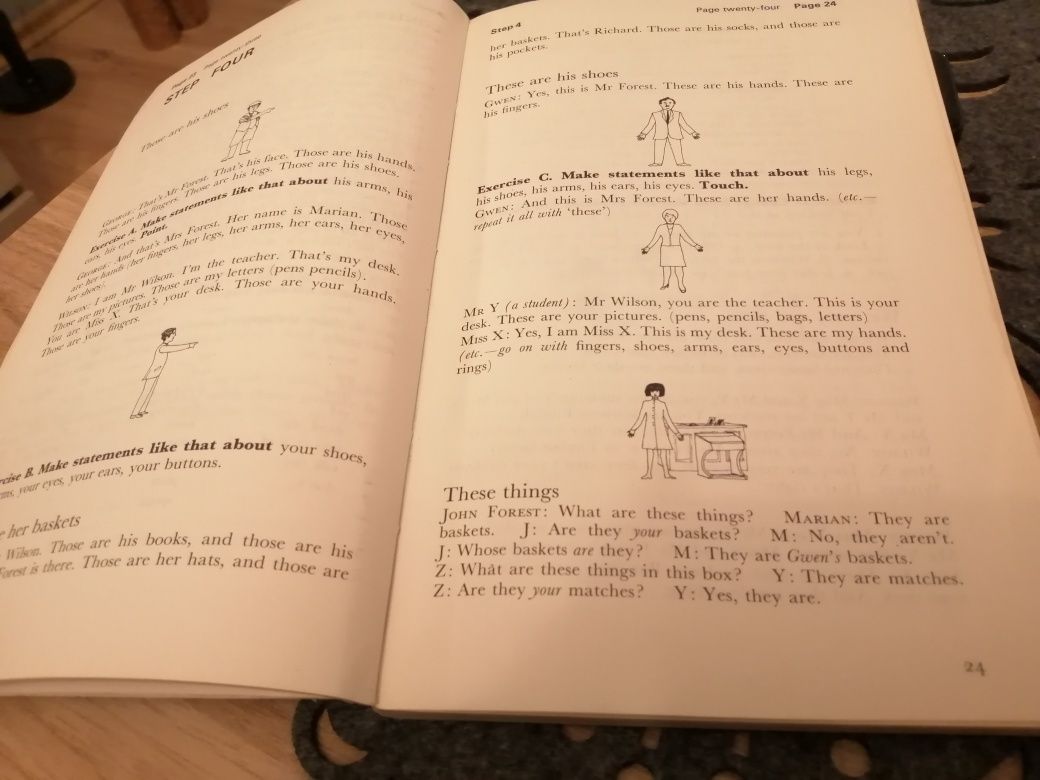 Page 23 Page twenty-three
STEP FOUR
Those are his shoes
GEORGE: That's Mr Forest. That's his face. Those are his hands.
Those are his fingers. Those are his legs. Those are his shoes.
Exercise A. Make statements like that about his arms, his
ears, his eyes. Point.
GEORGE: And that's Mrs Forest. Her name is Marian. Those
are her hands (her fingers, her legs, her arms, her ears, her eyes,
her shoes).
WILSON: I am Mr Wilson. I'm the teacher. That's my desk.
Those are my pictures. Those are my letters (pens pencils).
You are Miss X. That's your desk. Those are your hands.
Those are your fingers.
B. Make statements like that about your shoes,
your eyes, your ears, your buttons.
her baskets
Wilson. Those are his books, and those are his
Forest is there. Those are her hats, and those are
Step 4 Page twenty-four Page 24
her baskets. That's Richard. Those are his socks, and those are
his pockets.
These are his shoes
GWEN: Yes, this is Mr Forest. These are his hands. These are
his fingers.
Exercise C. Make statements like that about his legs,
his shoes, his arms, his ears, his eyes. Touch.
GWEN: And this is Mrs Forest. These are her hands. (etc.—
repeat it all with 'these')
MR Y (a student): Mr Wilson, you are the teacher. This is your
desk. These are your pictures. (pens, pencils, bags, letters)
MISS X: Yes, I am Miss X. This is my desk. These are my hands.
(etc.—go on with fingers, shoes, arms, ears, eyes, buttons and
rings)
These things
JOHN FOREST: What are these things? MARIAN: They are
baskets. J: Are they your baskets? M: No, they aren't.
J: Whose baskets are they? M: They are Gwen's baskets.
Z: What are these things in this box? Y: They are matches.
Z: Are they your matches? Y: Yes, they are.
24